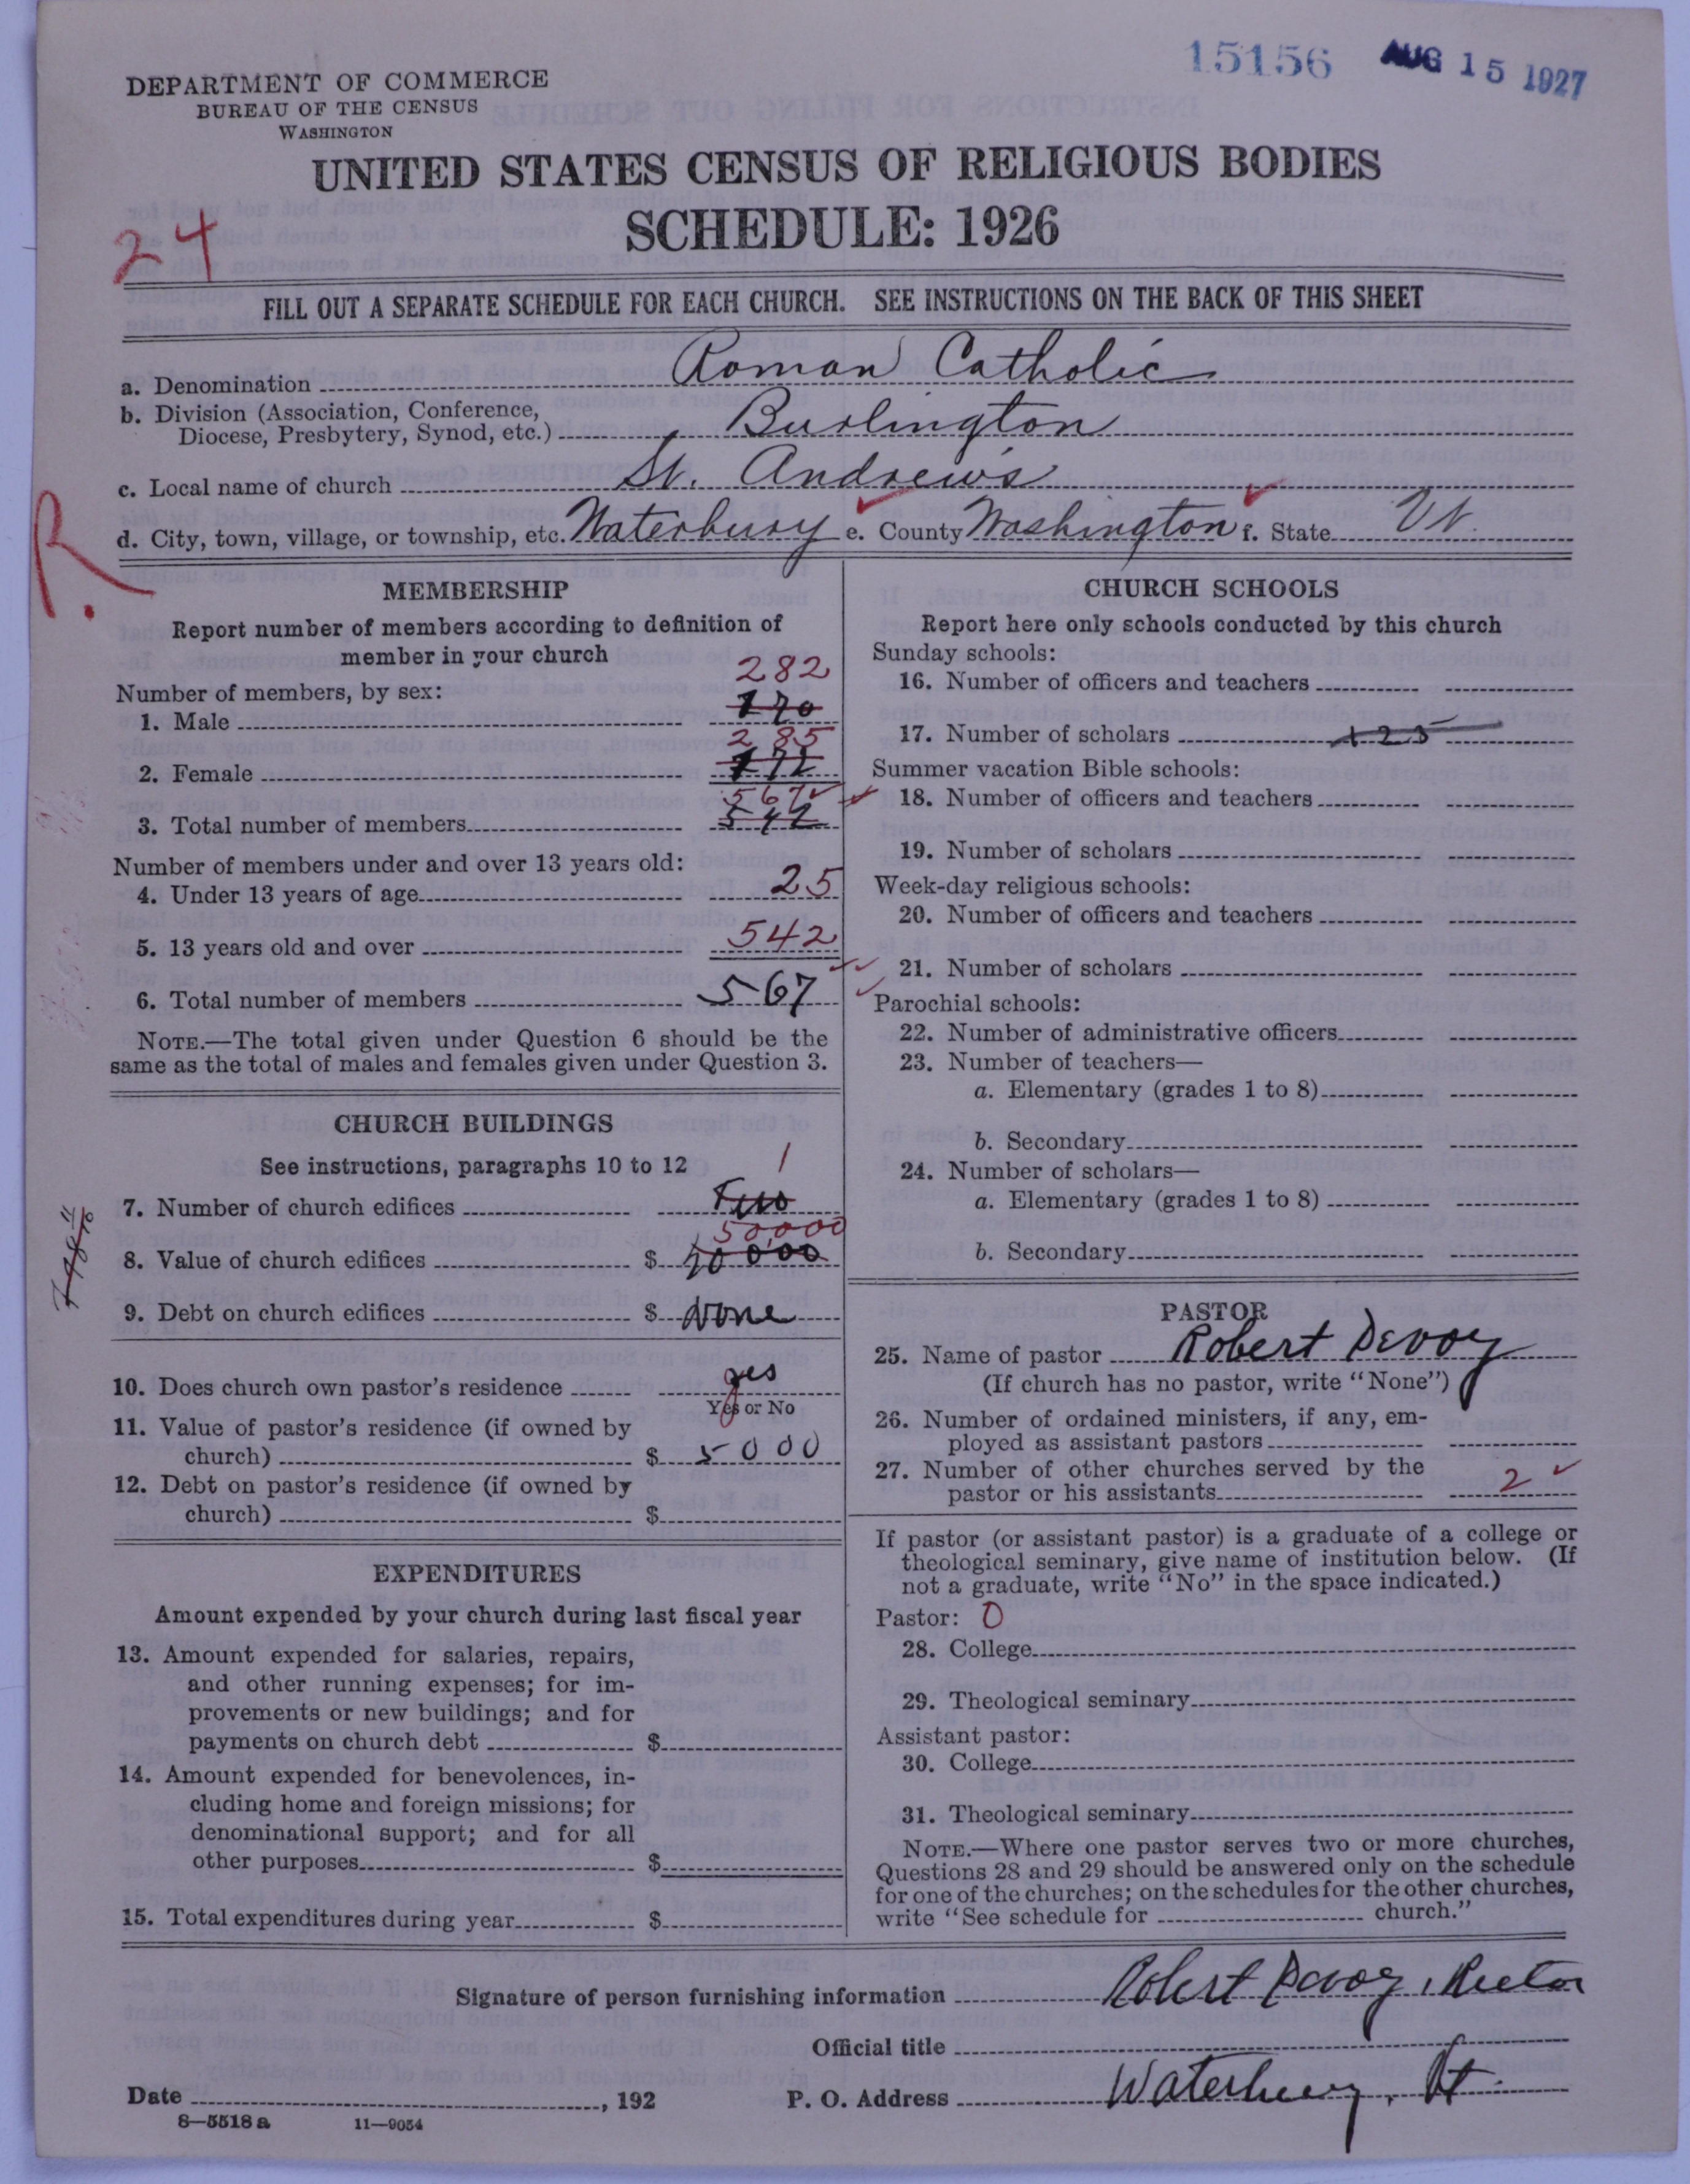 15156 AUG 15 1927
DEPARTMENT OF COMMERCE
BUREAU OF THE CENSUS
WASHINGTON
UNITED STATES CENSUS OF RELIGIOUS BODIES
SCHEDULE: 1926
24
FILL OUT A SEPARATE SCHEDULE FOR EACH CHURCH. SEE INSTRUCTIONS ON THE BACK OF THIS SHEET
a. Denomination Roman Catholic
b. Division (Association, Conference,
Diocese, Presbytery, Synod, etc.) Burlington
c. Local name of church St. Andrew's
d. City, town, village, or township, etc. Waterbury e. County Washington f. State Vt.
R.
MEMBERSHIP
Report number of members according to definition of
member in your church
Number of members, by sex:
282
1. Male 170
285
2. Female 172
567
3. Total number of members 542
Number of members under and over 13 years old:
4. Under 13 years of age 25
5. 13 years old and over 542
6. Total number of members 567
NOTE.—The total given under Question 6 should be the
same as the total of males and females given under Question 3.
CHURCH BUILDINGS
See instructions, paragraphs 10 to 12
1
7. Number of church edifices Two
50,000
8. Value of church edifices $ 000
9. Debt on church edifices $ None
10. Does church own pastor's residence yes
Yes or No
11. Value of pastor's residence (if owned by
church) $ 5000
12. Debt on pastor's residence (if owned by
church) $
EXPENDITURES
Amount expended by your church during last fiscal year
13. Amount expended for salaries, repairs,
and other running expenses; for im-
provements or new buildings; and for
payments on church debt $
14. Amount expended for benevolences, in-
cluding home and foreign missions; for
denominational support; and for all
other purposes $
15. Total expenditures during year $
CHURCH SCHOOLS
Report here only schools conducted by this church
Sunday schools:
16. Number of officers and teachers
17. Number of scholars 125
Summer vacation Bible schools:
18. Number of officers and teachers
19. Number of scholars
Week-day religious schools:
20. Number of officers and teachers
21. Number of scholars
Parochial schools:
22. Number of administrative officers
23. Number of teachers—
a. Elementary (grades 1 to 8)
b. Secondary
24. Number of scholars—
a. Elementary (grades 1 to 8)
b. Secondary
PASTOR
25. Name of pastor Robert Devoy
(If church has no pastor, write "None")
26. Number of ordained ministers, if any, em-
ployed as assistant pastors
27. Number of other churches served by the
pastor or his assistants 2
If pastor (or assistant pastor) is a graduate of a college or
theological seminary, give name of institution below. (If
not a graduate, write "No" in the space indicated.)
Pastor: 0
28. College
29. Theological seminary
Assistant pastor:
30. College
31. Theological seminary
NOTE.—Where one pastor serves two or more churches,
Questions 28 and 29 should be answered only on the schedule
for one of the churches; on the schedules for the other churches,
write "See schedule for church."
Signature of person furnishing information Robert Devoy, Rector
Official title
Date , 192 P. O. Address Waterbury, Vt.
8—5518 a 11—9054